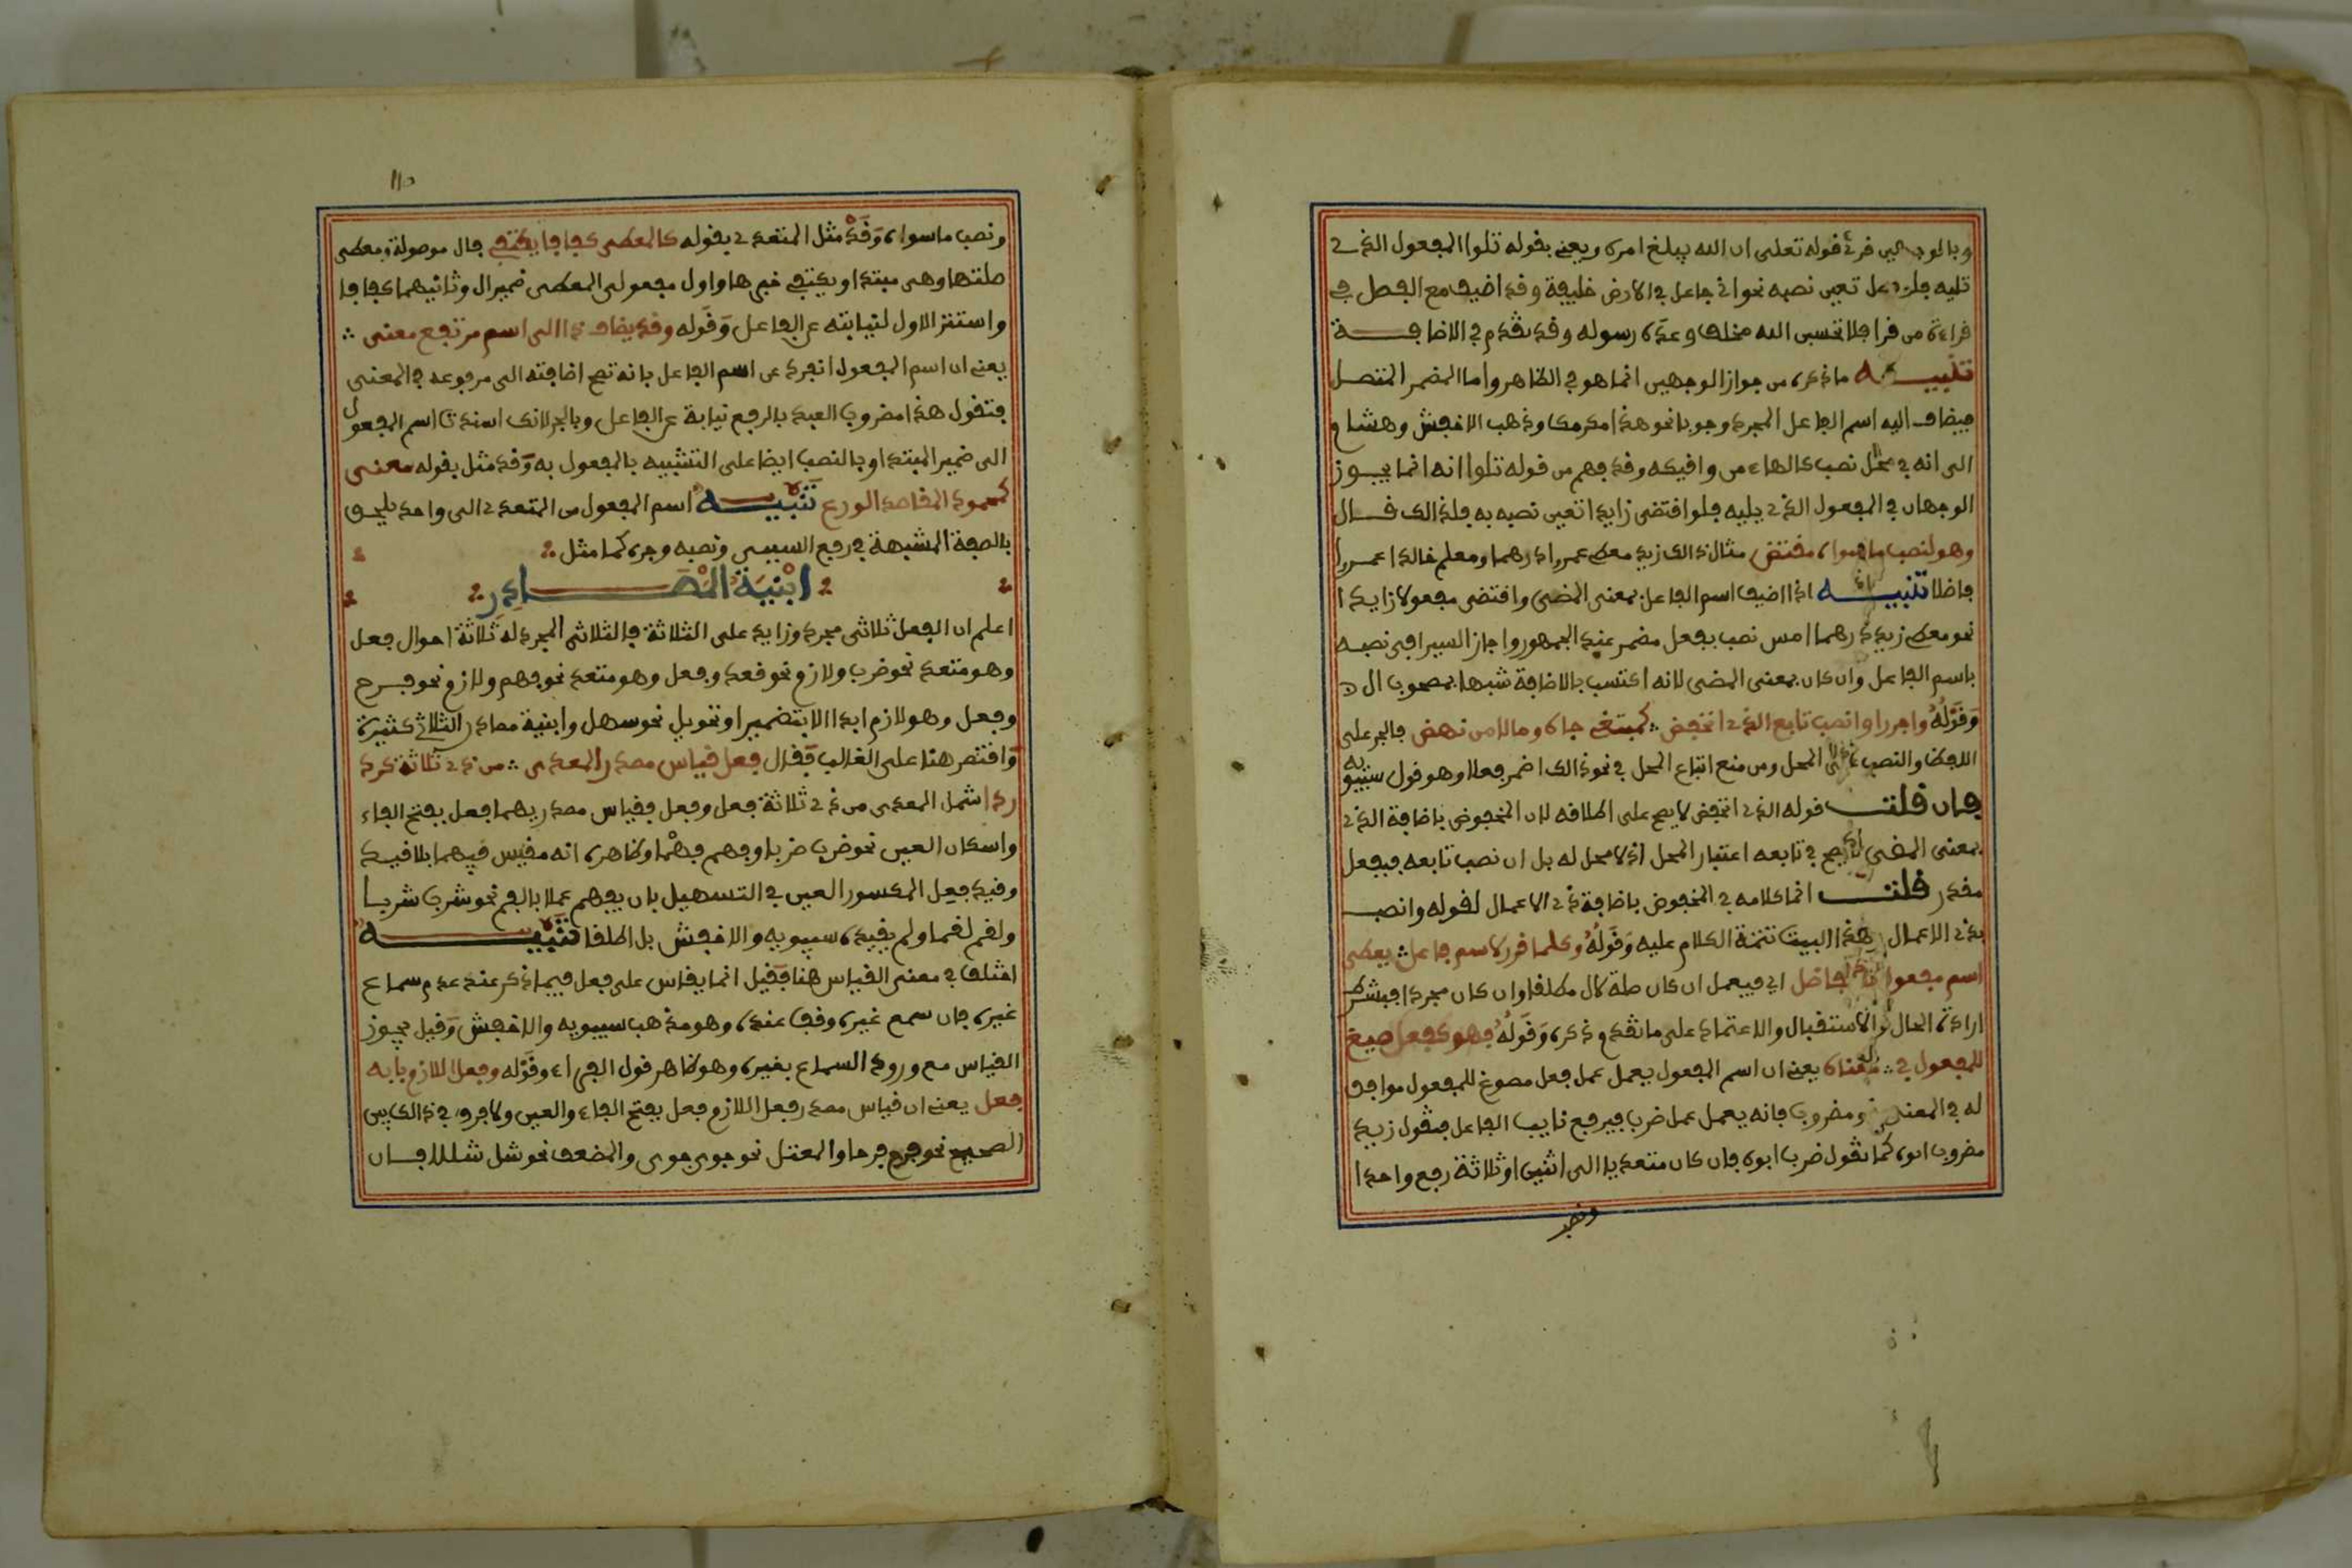 وبالوجهين قرئ قوله تعلى ان الله بلغ امره ويعني بقوله تلوا المفعول الذي
تليه فلو فصل تعين نصبه نحو اني جاعل في الارض خليفة وقد اضيف مع الفصل في
قراءة من قرا فلا تحسبن الله مخلف وعده رسوله وقد تقدم في الاضافة
تنبيه ما ذكره من جواز الوجهين انما هو في الظاهر واما المضمر المتصل
فيضاف اليه اسم الفاعل المجرد وجوبا نحو هذا مكرمك وذهب الاخفش وهشام
الى انه في محل نصب كالهاء من وافيكه وقد فهم من قوله تلوا انه انما يجوز
الوجهان في المفعول الذي يليه فلو اقتضى زايدا تعين نصبه به فلذالك قال
وهو لنصب ما سواه مقتض مثال ذالك زيد معط عمروا درهما ومعلم خالدا عمروا
فاضلا تنبيه اذا اضيف اسم الفاعل بمعنى المضي واقتضى مفعولا زايدا
نحو معط زيد درهما امس نصب بفعل مضمر عند الجمهور واجاز السيرافي نصبه
باسم الفاعل وان كان بمعنى المضي لانه اكتسب بالاضافة شبها بمصحوب ال
وَقَوْلُهُ واجرر او انصب تابع الذي انخفض كمبتغي جاه ومالا من نهض فالجر على
اللفظ والنصب على المحل ومن منع اتباع المحل في نحو ذالك اضمر فعلا وهو قول سيبويه
فان قلت قوله الذي انخفض لا يصح على اطلاقه لان المخفوض باضافة الذي
بمعنى المضي لا يصح في تابعه اعتبار المحل اذ لا محل له بل ان نصب تابعه فبفعل
مقدر قلت انما كلامه في المخفوض باضافة ذي الاعمال لقوله وانصب
بذي الاعمال هذا البيت تتمة الكلام عليه وَقَوْلُهُ وكلما قرر لاسم فاعل يعطى
اسم مفعول بلا تفاضل اي فيعمل ان كان صلة لال مطلقا وان كان مجردا فبشرط
ارادة الحال او الاستقبال والاعتماد على ما تقدم ذكره وَقَوْلُهُ فهو كفعل صيغ
للمفعول في معناه يعني ان اسم المفعول يعمل عمل فعل مصوغ للمفعول موافق
له في المعنى نحو مضروب فانه يعمل عمل ضرب فيرفع نايب الفاعل فتقول زيد
مضروب ابوه كما تقول ضرب ابوه فان كان متعديا الى اثنين او ثلاثة رفع واحدا
ونصب
ونصب ما سواه وَقَدْ مثل المتعدي بقوله كالمعطى كفافا يكتفي فال موصولة ومعطى
صلتها وهى مبتدا ويكتفي خبرها واول مفعولي المعطى ضمير ال وثانيهما كفافا
واستتر الاول لنيابته عن الفاعل وَقَوله وقد يضاف ذا الى اسم مرتفع معنى
يعني ان اسم المفعول انفرد عن اسم الفاعل بانه تصح اضافته الى مرفوعه في المعنى
فتقول هذا مضروب العبد بالرفع نيابة عن الفاعل وبالجر لانك اسندت اسم المفعول
الى ضمير المبتدا وبالنصب ايضا على التشبيه بالمفعول به وَقد مثل بقوله معنى
كمحمود المقاصد الورع تنبيه اسم المفعول من المتعدي الى واحد يلحق
بالصفة المشبهة في رفع السببي ونصبه وجره كما مثل
ابْنِيَةُ الْمَصَادِرِ
اعلم ان الفعل ثلاثي مجرد وزايد على الثلاثة فالثلاثي المجرد له ثلاثة احوال فعل
وهو متعد نحو ضرب ولازم نحو قعد وفعل وهو متعد نحو فهم ولازم نحو فرح
وفعل وهو لازم ابدا الا بتضمين او تحويل نحو سهل وابنية مصادر الثلاثي كثيرة
وَاقتصر هنا على الغالب فَقال فعل قياس مصدر المعدى من ذي ثلاثة كرد
ردا شمل المعدى من ذي ثلاثة فعل وفعل فقياس مصدريهما فعل بفتح الفاء
واسكان العين نحو ضرب ضربا وفهم فهْما وظاهره انه مقيس فيهما بلا قيد
وقيد فعل المكسور العين في التسهيل بان يفهم عملا بالفم نحو شرب شربا
ولقم لقما ولم يقيده سيبويه والاخفش بل اطلقا تنبيه
اختلف في معنى القياس هنا فَقيل انما يقاس على فعل فيما ذكر عند عدم سماع
غيره فان سمع غيره وقف عنده وهو مذهب سيبويه والاخفش وَقيل يجوز
القياس مع ورود السماع بغيره وهو ظاهر قول الفراء وقَوْله وفعل اللازم بابه
فعل يعني ان قياس مصدر فعل اللازم فعل بفتح الفاء والعين ولا فرق في ذالك بين
الصحيح نحو فرح فرحا والمعتل نحو جوى جوى والمضعف نحو شل شللا فان